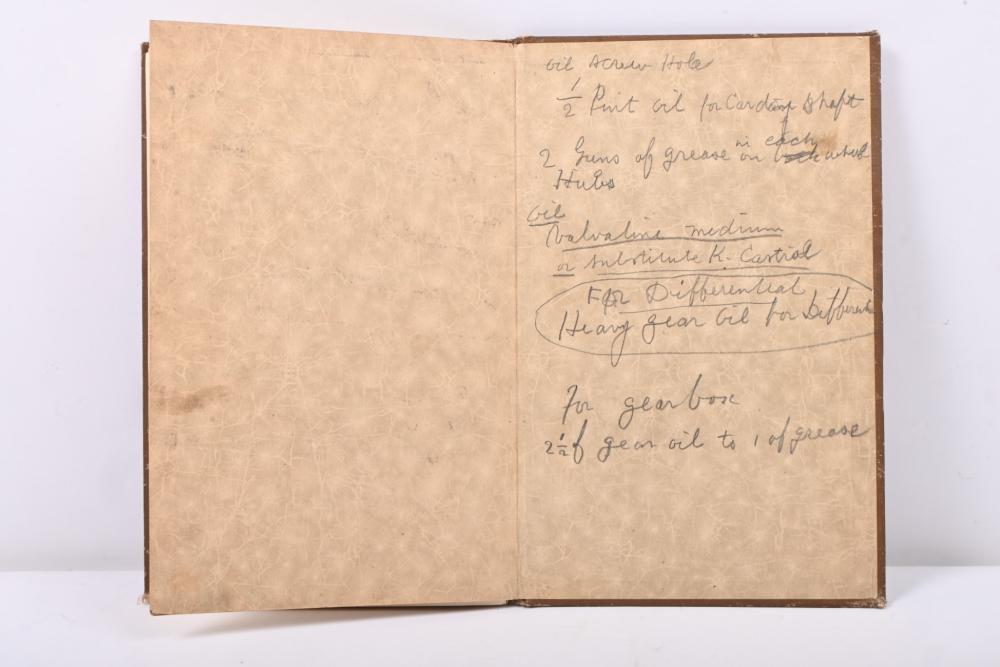 oil screw Hole
1/2 Pint oil for Cardan Shaft
in each
2 Guns of grease on wheel
Hubs
oil
Valvaline medium
or substitute K. Castrol
For Differential
Heavy gear oil for Different
For gear box
2 1/2 of gear oil to 1 of grease